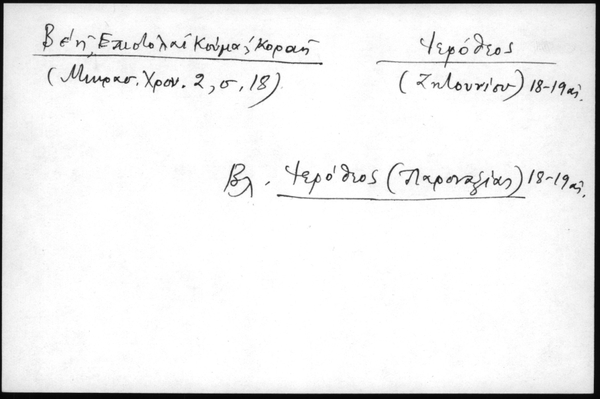 Βέη, Ἐπιστολαί Κούμα, Κοραῆ
(Μικρασ. Χρον. 2, σ. 18)
Ἱερόθεος
(Ζητουνίου) 18-19 αἰ.
Βλ. Ἱερόθεος (Παροναξίας) 18-19 αἰ.